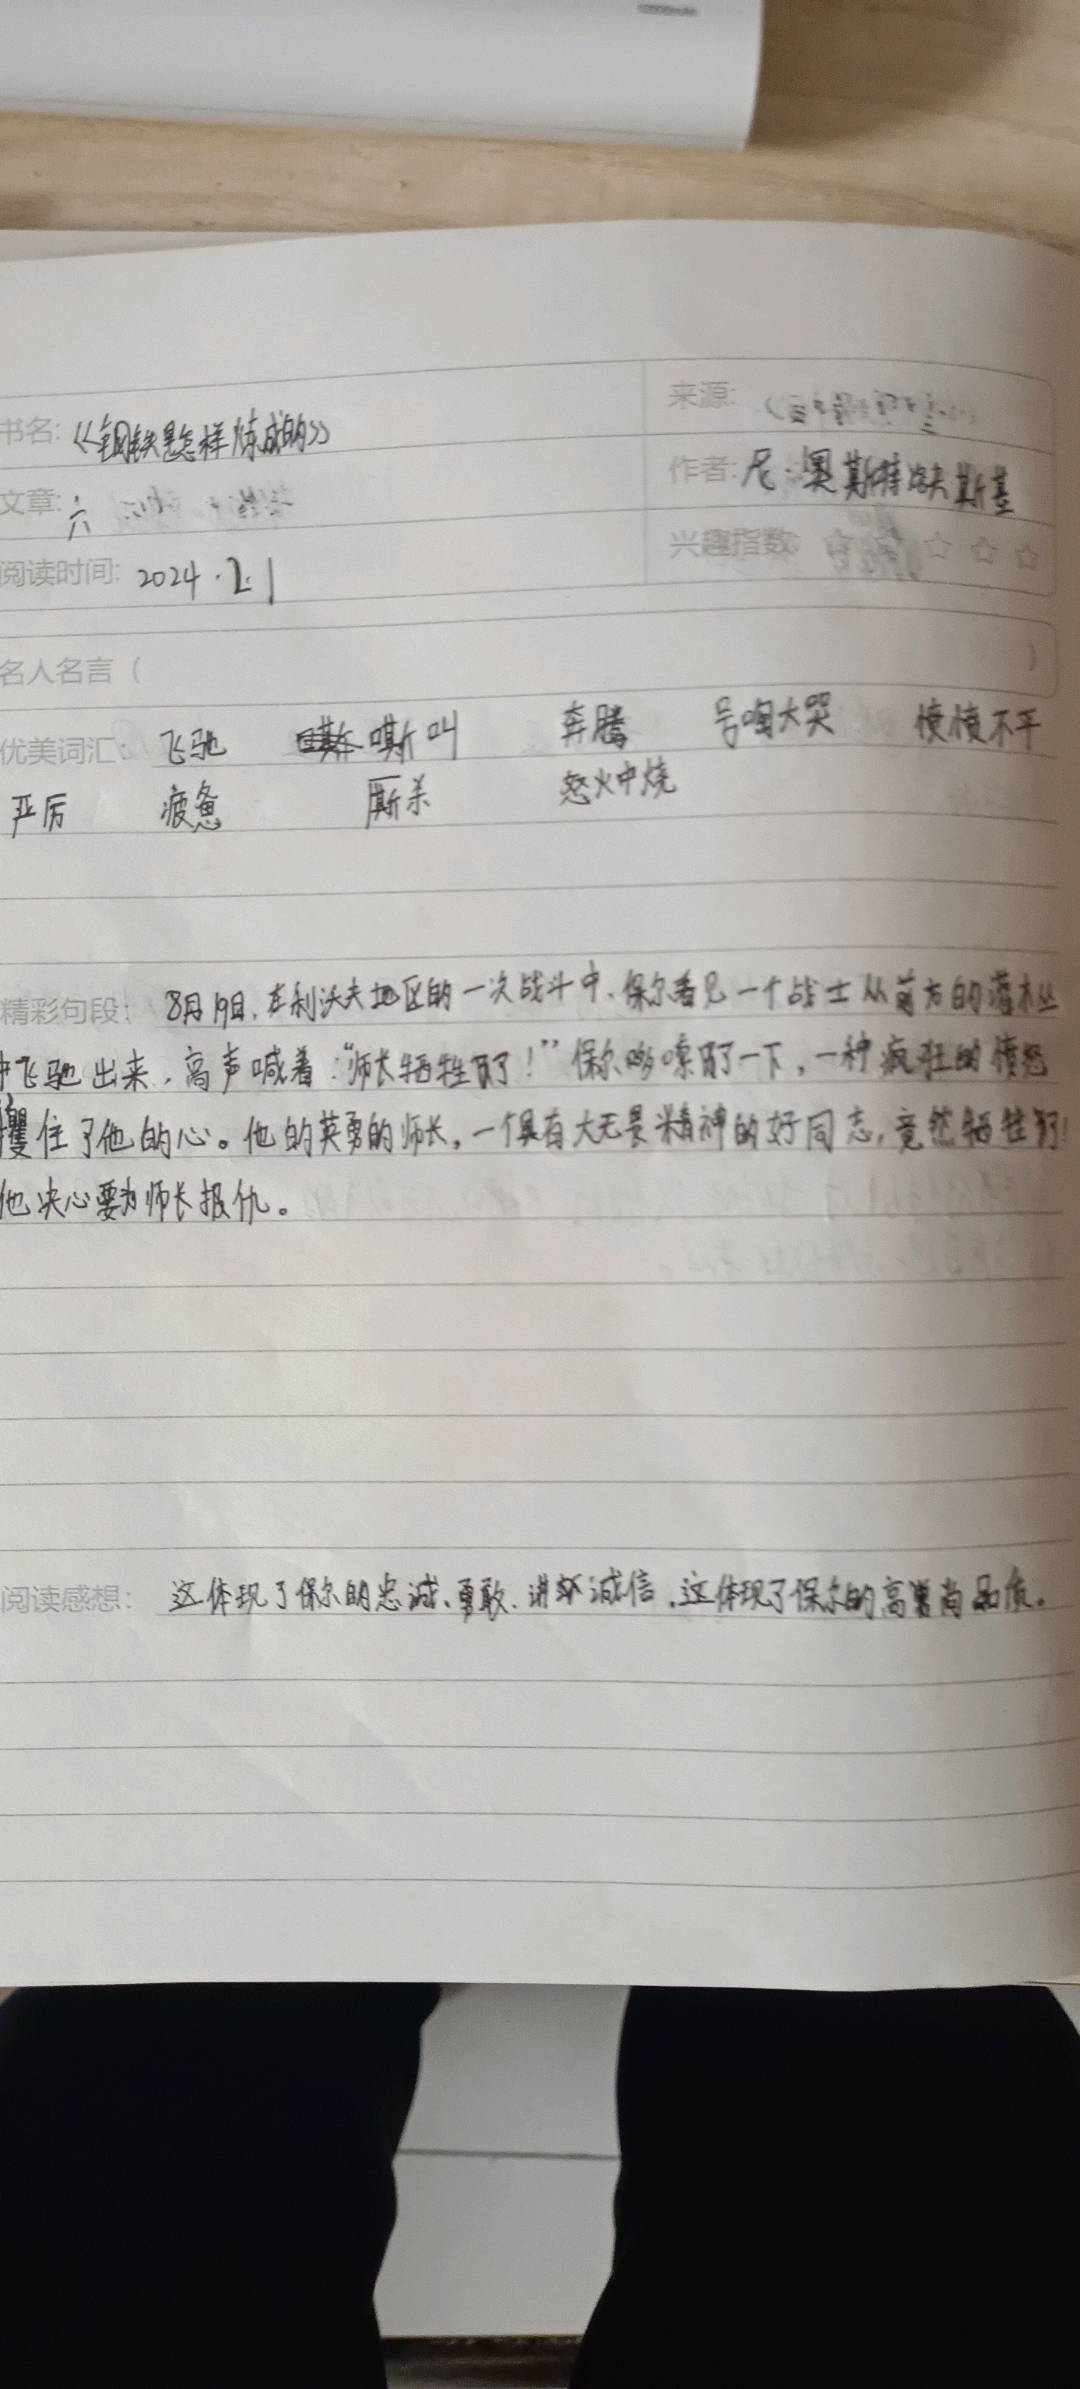 书名: 《钢铁是怎样炼成的》
来源:
文章: 六
作者: 尼·奥斯特洛夫斯基
阅读时间: 2024.2.1
兴趣指数: ☆ ☆ ☆ ☆ ☆
名人名言 ( )
优美词汇: 飞驰 嘶叫 奔腾 号啕大哭 愤愤不平
严厉 疲惫 厮杀 怒火中烧
精彩句段: 8月19日,在利沃夫地区的一次战斗中,保尔看见一个战士从前方的灌木丛
中飞驰出来,高声喊着:“师长牺牲了!”保尔哆嗦了一下,一种疯狂的愤怒
攫住了他的心。他的英勇的师长,一个具有大无畏精神的好同志,竟然牺牲了!
他决心要为师长报仇。
阅读感想: 这体现了保尔的忠诚、勇敢、讲诚信,这体现了保尔的高尚品质。